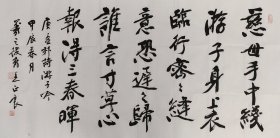 慈母手中线
游子身上衣
臨行密々缝
意恐遲々归
誰言寸草心
報得三春暉
唐孟郊詩游子吟
甲辰春月